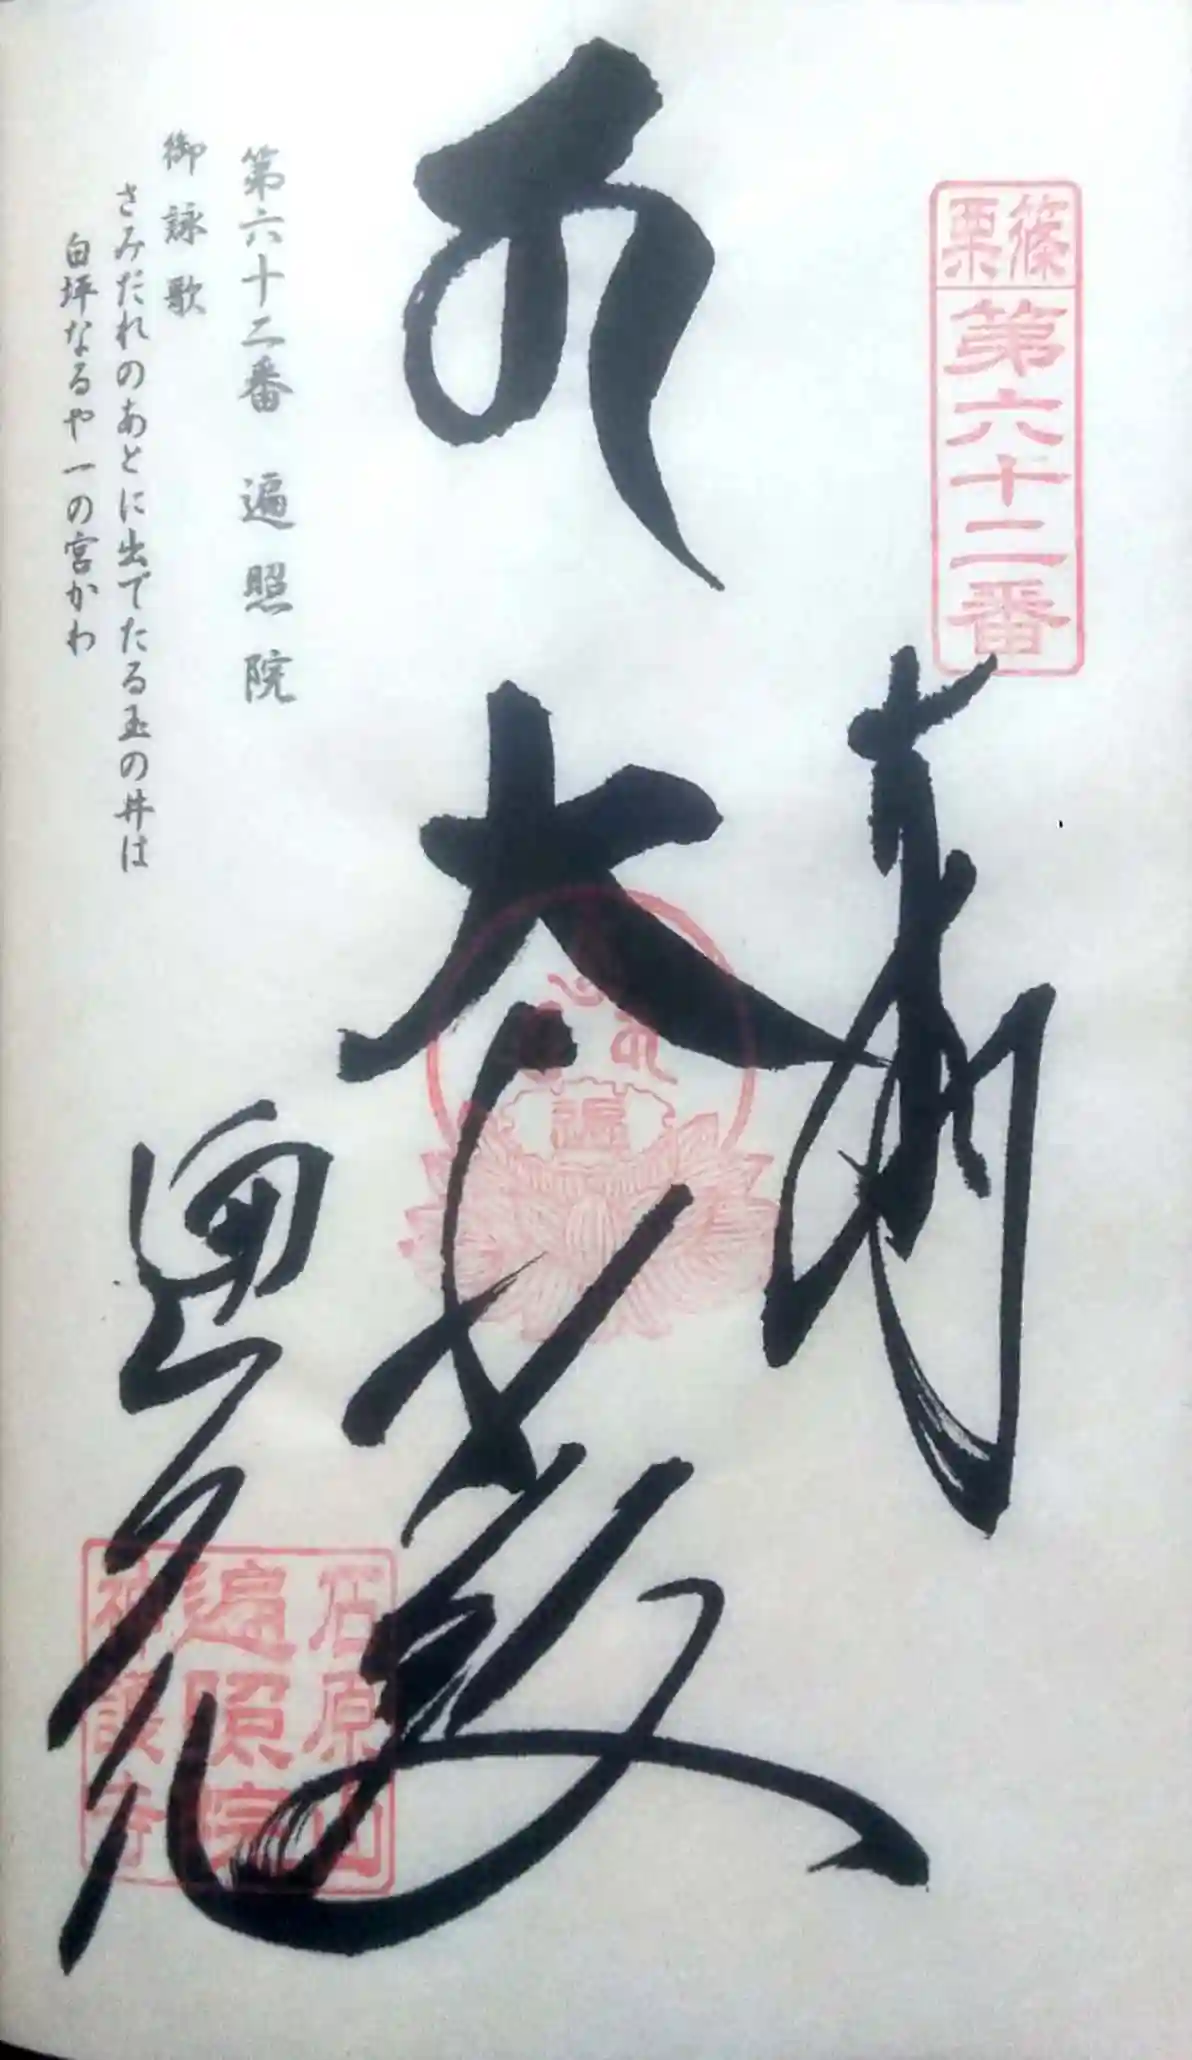 篠栗
第六十二番
奉拝
大日如来
遍照院
第六十二番 遍照院
御詠歌
さみだれのあとに出でたる玉の井は
白坪なるや一の宮かわ
遍
石原山
遍照院
神護寺